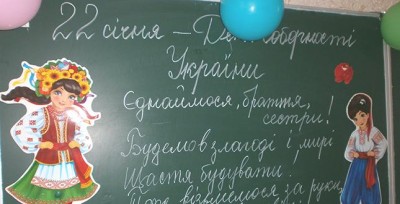 22 січня – День Соборності
України
Єднаймося, браття,
сестри!
Будемо в злагоді і мирі
Щастя будувати!
Тож візьмемося за руки,